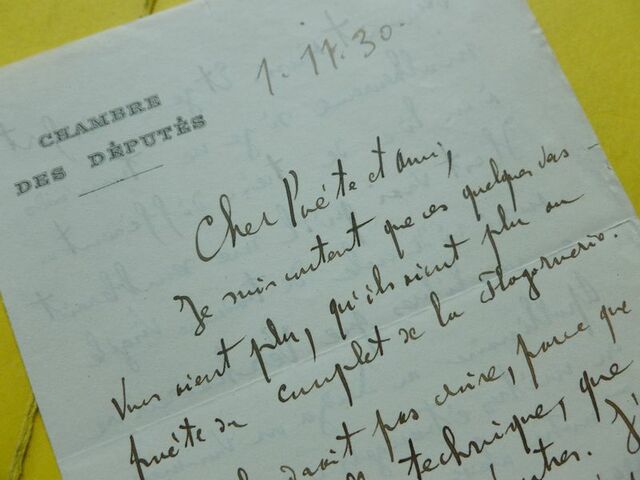 1. 11. 30.
CHAMBRE
DES DÉPUTÉS
Cher Poéte et ami,
Je suis content que ces quelques vers
Vous aient plu, qu'ils aient plu au
poéte du couplet de la Flagornerie.
pas dire, parce que
technique, que
J'